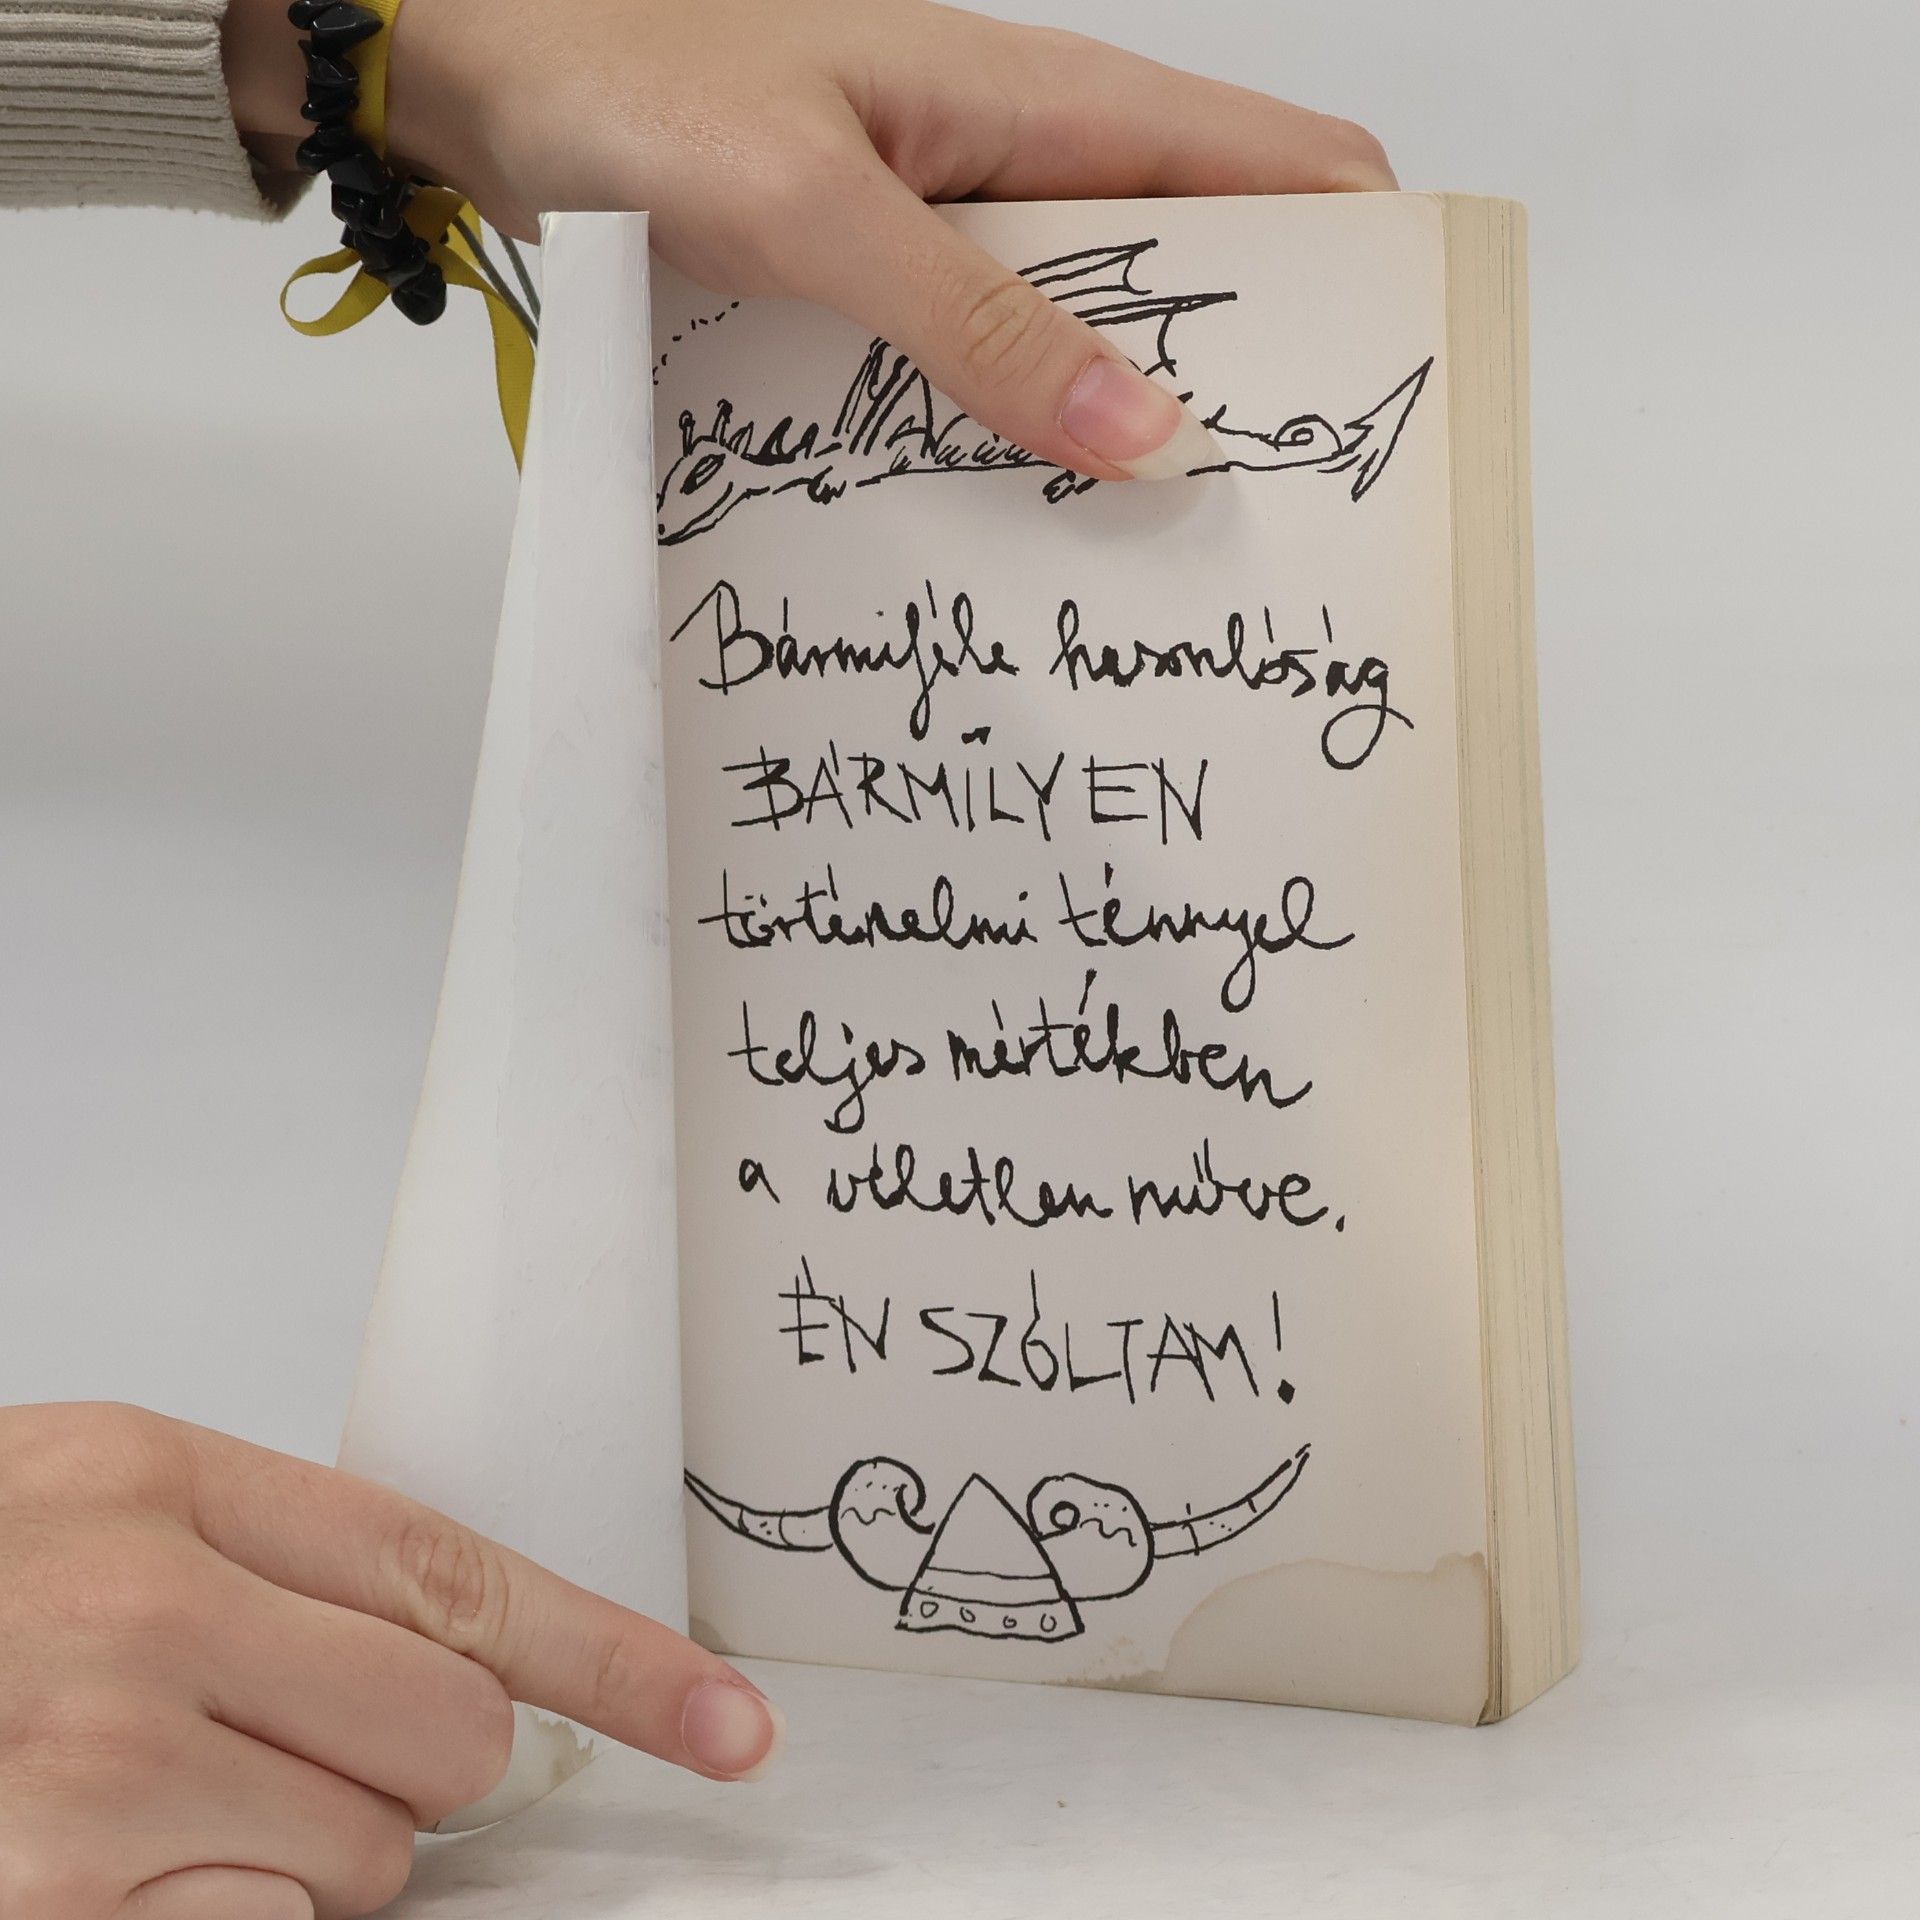 Bármiféle hasonlóság
BÁRMILYEN
történelmi ténnyel
teljes mértékben
a véletlen műve.
ÉN SZÓLTAM!